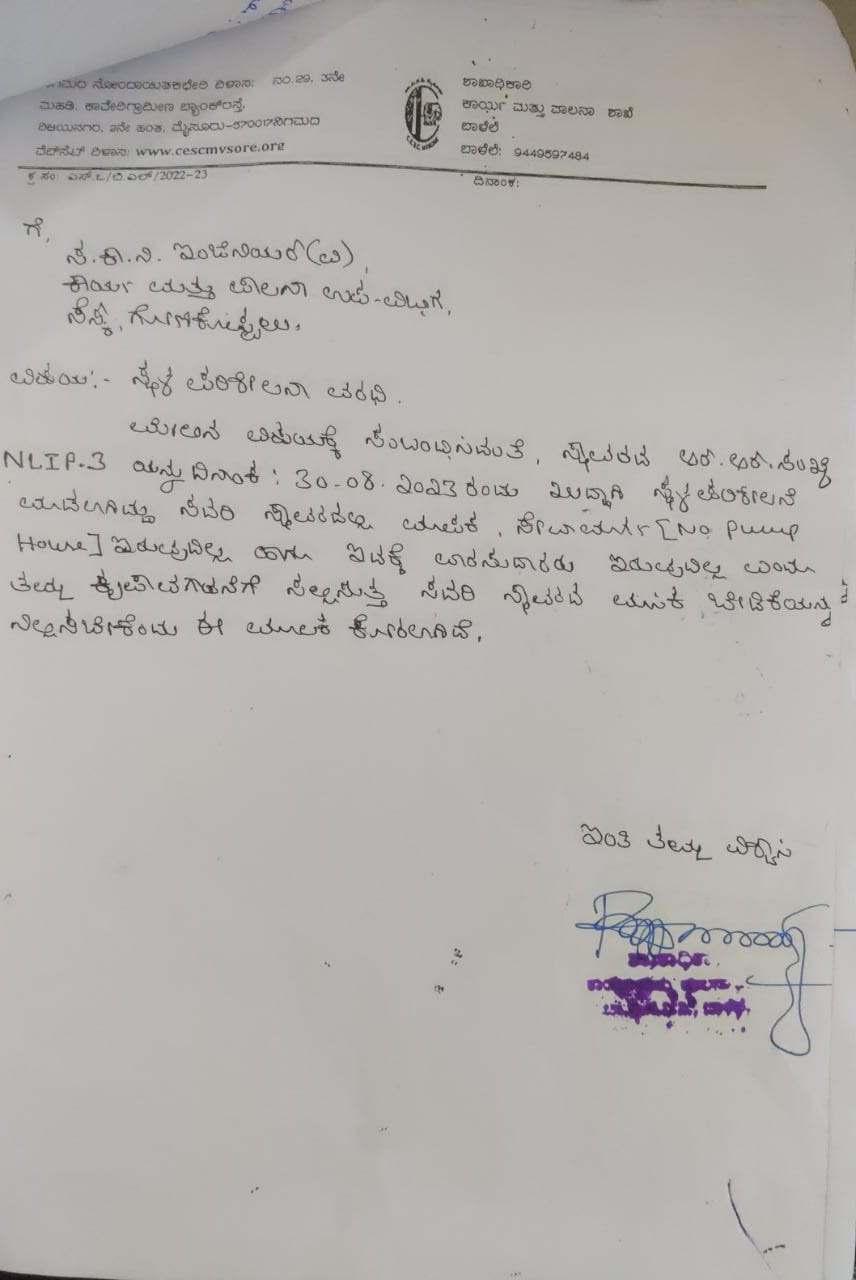 ನೋಂದಾಯಿತ ಕಛೇರಿ ವಿಳಾಸ: ನಂ.29, 3ನೇ
ಮಹಡಿ, ಕಾವೇರಿಗ್ರಾಮೀಣ ಬ್ಯಾಂಕ್‌ರಸ್ತೆ,
ವಿಜಯನಗರ, 2ನೇ ಹಂತ, ಮೈಸೂರು-570017ನಿಗಮದ
ವೆಬ್‌ಸೈಟ್ ವಿಳಾಸ: www.cescmysore.org
ಕ್ರ ಸಂ: ಎಸ್.ಒ/ಬಿ.ಎಲ್/2022-23
ಶಾಖಾಧಿಕಾರಿ
ಕಾರ್ಯ ಮತ್ತು ಪಾಲನಾ ಶಾಖೆ
ಬಾಳೆಲೆ
ಬಾಳೆಲೆ: 9449597484
ದಿನಾಂಕ:
ಗೆ,
ಸ.ಕಾ.ನಿ. ಇಂಜಿನಿಯರ್(ವಿ),
ಕಾರ್ಯ ಮತ್ತು ಪಾಲನಾ ಉಪ-ವಿಭಾಗ,
ಸೆಸ್ಕ್, ಗೋಣಿಕೊಪ್ಪಲು.
ವಿಷಯ:- ಸ್ಥಳ ಪರಿಶೀಲನಾ ವರದಿ.
ಮೇಲಿನ ವಿಷಯಕ್ಕೆ ಸಂಬಂಧಿಸಿದಂತೆ, ಸ್ಥಾವರದ ಆರ್.ಆರ್.ಸಂಖ್ಯೆ
NLIP-3 ಯನ್ನು ದಿನಾಂಕ: 30-08-2023 ರಂದು ಖುದ್ದಾಗಿ ಸ್ಥಳ ಪರಿಶೀಲನೆ
ಮಾಡಲಾಗಿದ್ದು ಸದರಿ ಸ್ಥಾವರದಲ್ಲಿ ಮಾಪಕ, ಸೇವಾಮಾರ್ಗ [No Pump
House] ಇರುವುದಿಲ್ಲ ಹಾಗೂ ಇದಕ್ಕೆ ವಾರಸುದಾರರು ಇರುವುದಿಲ್ಲ ಎಂದು
ತಮ್ಮ ಕೃಪಾವಗಾಹನೆಗೆ ಸಲ್ಲಿಸುತ್ತಾ ಸದರಿ ಸ್ಥಾವರದ ಮಾಸಿಕ ಬೇಡಿಕೆಯನ್ನು
ನಿಲ್ಲಿಸಬೇಕೆಂದು ಈ ಮೂಲಕ ಕೋರಲಾಗಿದೆ.
ಇಂತಿ ತಮ್ಮ ವಿಶ್ವಾಸಿ